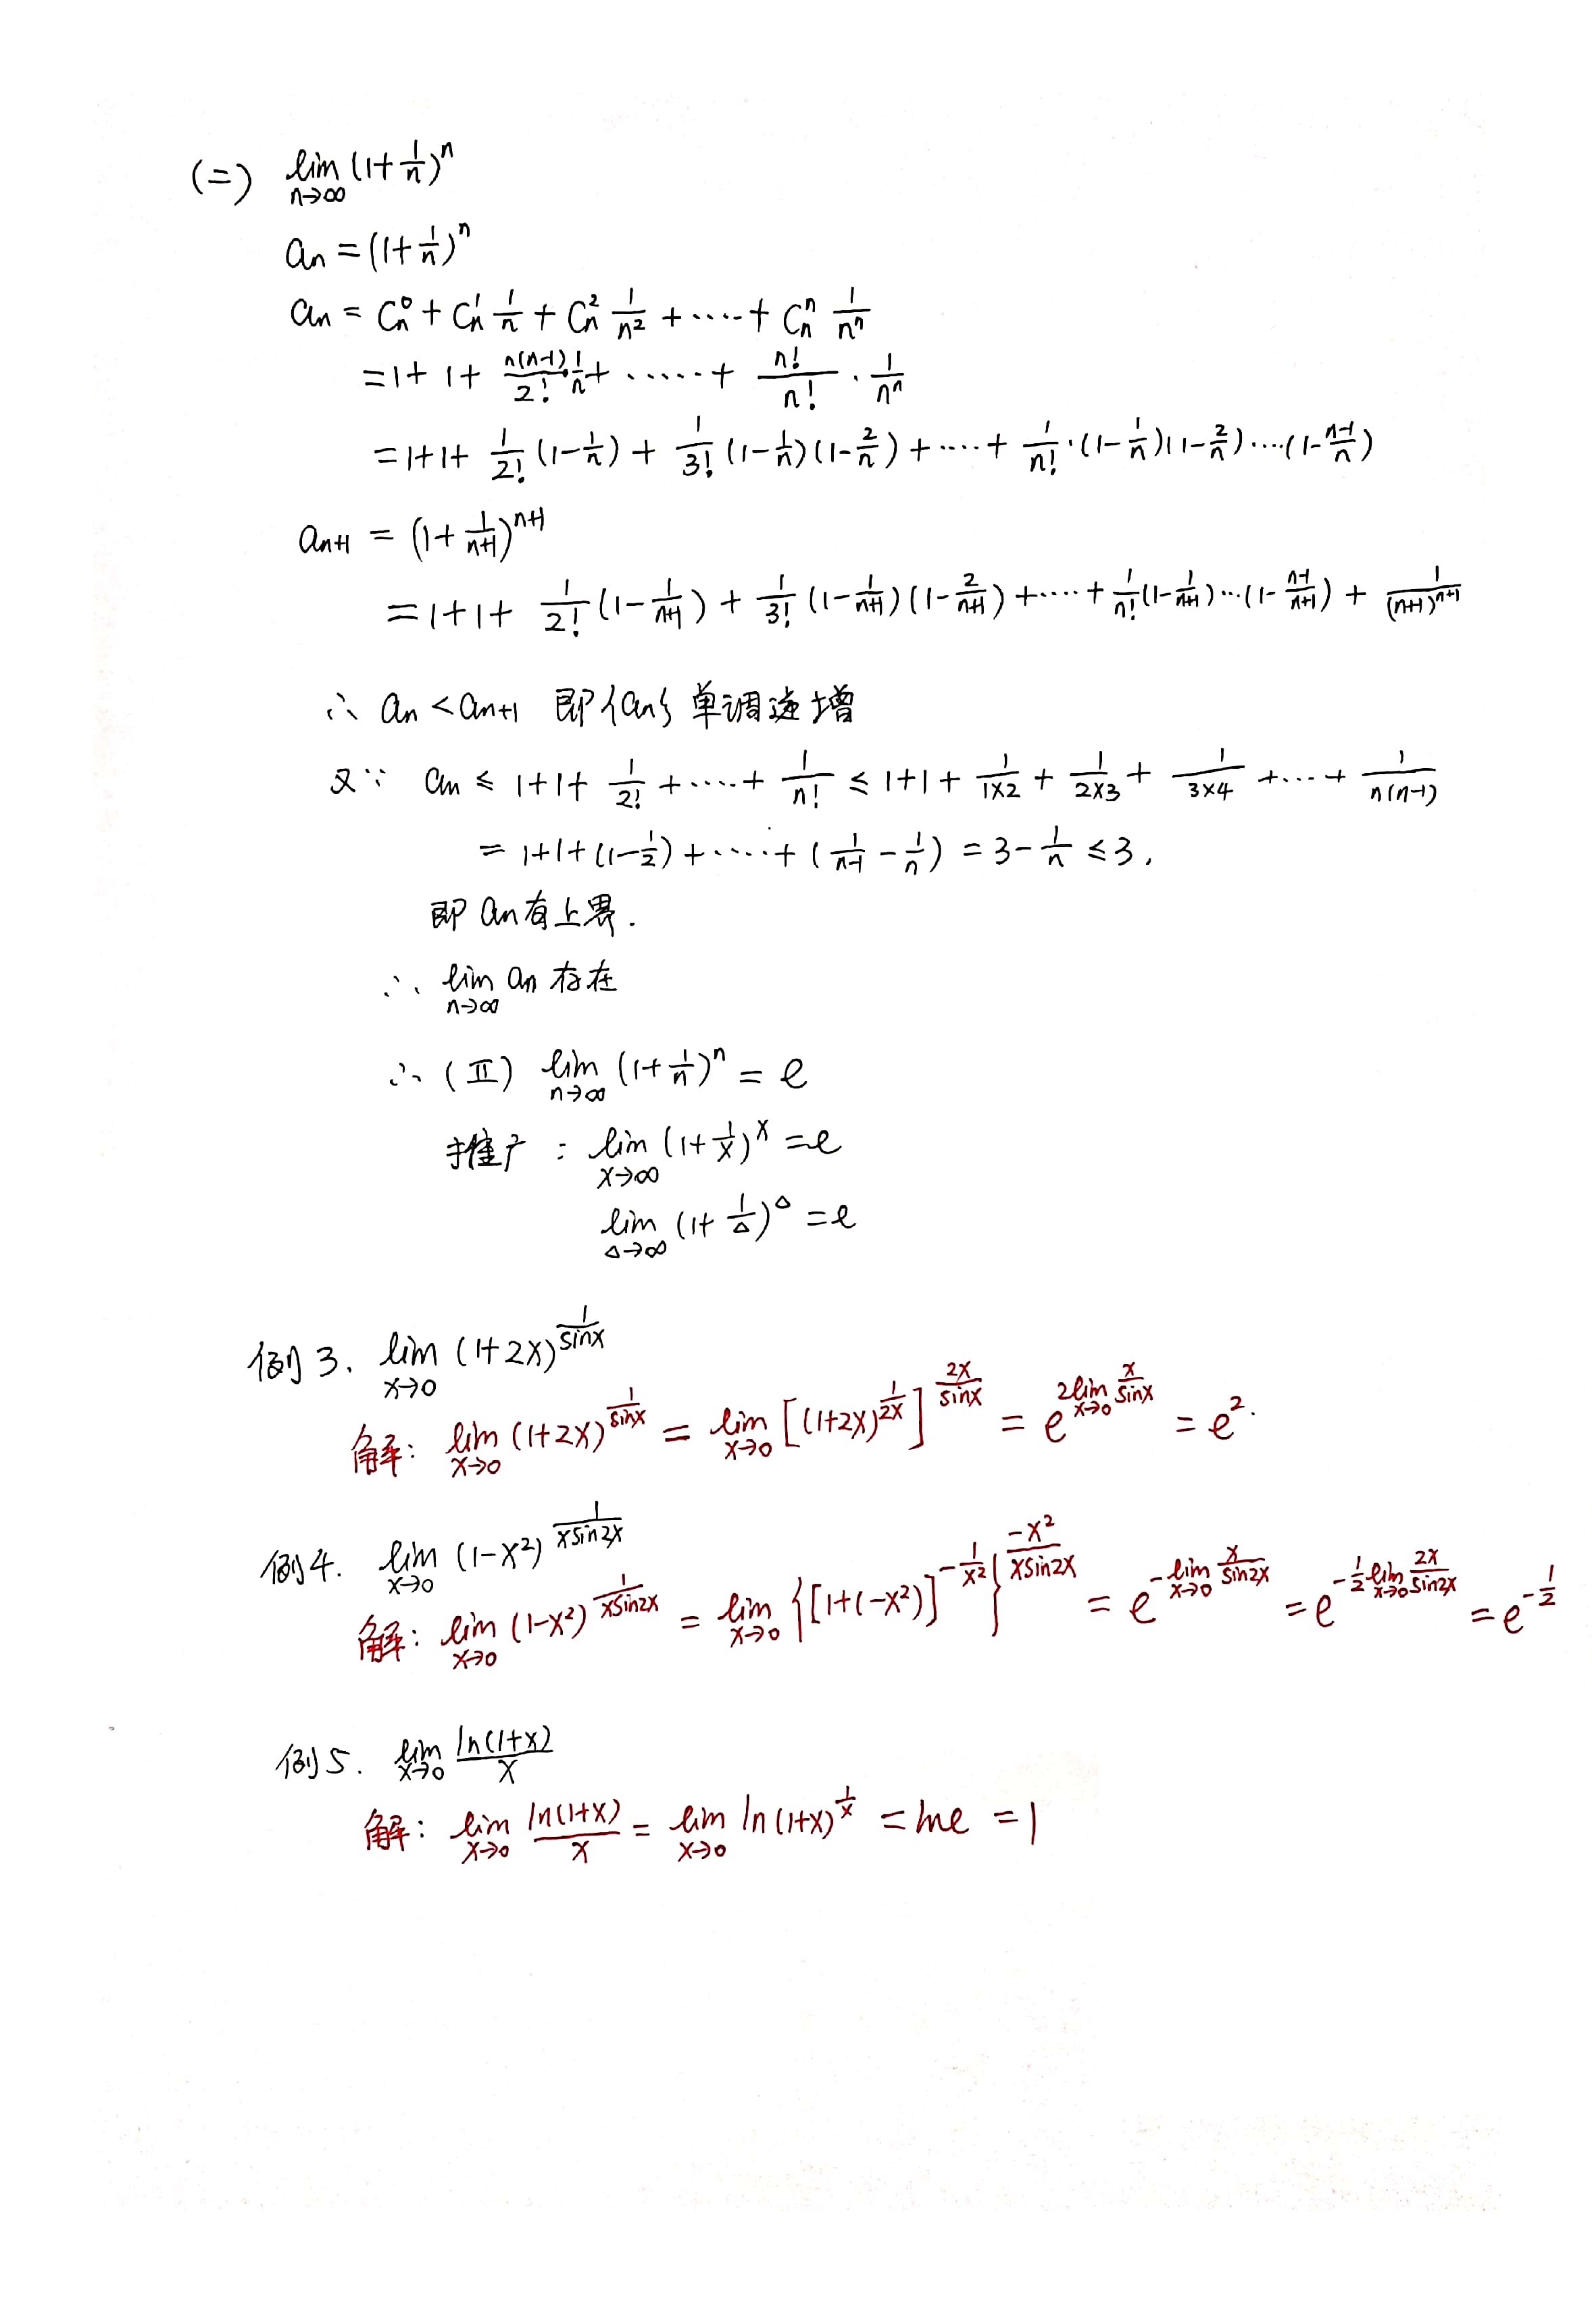 (二) lim_{n→∞} (1+1/n)^n
a_n = (1+1/n)^n
a_n = C_n^0 + C_n^1 1/n + C_n^2 1/n^2 + ····· + C_n^n 1/n^n
= 1 + 1 + n(n-1)/2! · 1/n + ······ + n!/n! · 1/n^n
= 1+1+ 1/2! (1-1/n) + 1/3! (1-1/n)(1-2/n) + ····· + 1/n! · (1-1/n)(1-2/n)····(1-(n-1)/n)
a_{n+1} = (1+1/(n+1))^{n+1}
= 1+1+ 1/2! (1-1/(n+1)) + 1/3! (1-1/(n+1))(1-2/(n+1)) + ····· + 1/n! (1-1/(n+1))···(1-(n-1)/(n+1)) + 1/(n+1)^{n+1}
∴ a_n < a_{n+1} 即{a_n}单调递增
又∵ a_n ≤ 1+1+ 1/2! + ····· + 1/n! ≤ 1+1+ 1/(1×2) + 1/(2×3) + 1/(3×4) + ···· + 1/(n(n-1))
= 1+1+(1-1/2) + ····· + (1/(n-1) - 1/n) = 3 - 1/n ≤ 3,
即 a_n有上界.
∴ lim_{n→∞} a_n 存在
∴ (Ⅱ) lim_{n→∞} (1+1/n)^n = e
推广 : lim_{x→∞} (1+1/x)^x = e
lim_{△→∞} (1+1/△)^△ = e
例3. lim_{x→0} (1+2x)^{1/sinx}
解: lim_{x→0} (1+2x)^{1/sinx} = lim_{x→0} [(1+2x)^{1/2x}]^{2x/sinx} = e^{2lim_{x→0} x/sinx} = e^2.
例4. lim_{x→0} (1-x^2)^{1/xsin2x}
解: lim_{x→0} (1-x^2)^{1/xsin2x} = lim_{x→0} {[1+(-x^2)]^{-1/x^2}}^{-x^2/xsin2x} = e^{-lim_{x→0} x/sin2x} = e^{-1/2 lim_{x→0} 2x/sin2x} = e^{-1/2}
例5. lim_{x→0} ln(1+x)/x
解: lim_{x→0} ln(1+x)/x = lim_{x→0} ln(1+x)^{1/x} = lne = 1